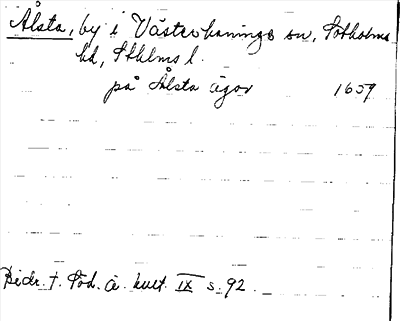 Ålsta, by i Västerhaninge sn, Sotholms
hd, Sthlms l.
på Ålsta ägor 1659
Bidr. t. Söd. ä. kult. IX s. 92.